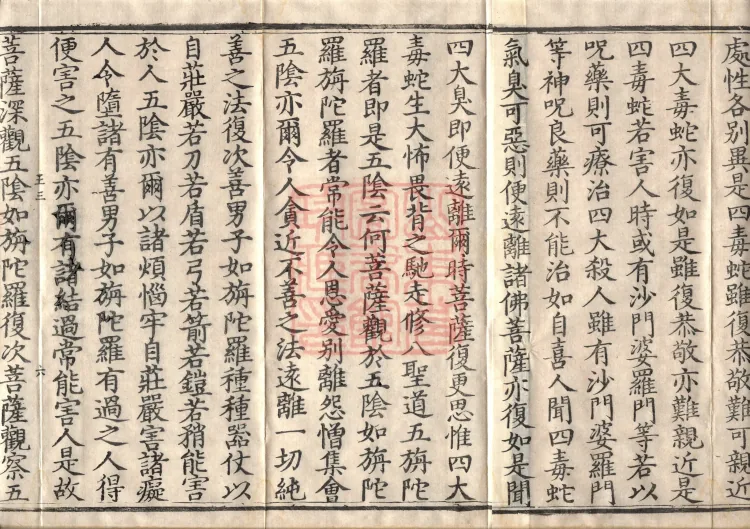 處性各別異是四毒蛇雖復恭敬難可親近
四大毒蛇亦復如是雖復恭敬亦難親近是
四毒蛇若害人時或有沙門婆羅門等若以
呪藥則可療治四大殺人雖有沙門婆羅門
等神呪良藥則不能治如自喜人聞四毒蛇
氣臭可惡則便遠離諸佛菩薩亦復如是聞
四大臭即便遠離爾時菩薩復更思惟四大
毒蛇生大怖畏背之馳走修八聖道五旃陀
羅者即是五陰云何菩薩觀於五陰如旃陀
羅旃陀羅者常能令人恩愛別離怨憎集會
五陰亦爾令人貪近不善之法遠離一切純
善之法復次善男子如旃陀羅種種器仗以
自莊嚴若刀若盾若弓若箭若鎧若矟能害
於人五陰亦爾以諸煩惱牢自莊嚴害諸癡
人令墮諸有善男子如旃陀羅有過之人得
便害之五陰亦爾有諸結過常能害人是故
王三 六
菩薩深觀五陰如旃陀羅復次菩薩觀察五